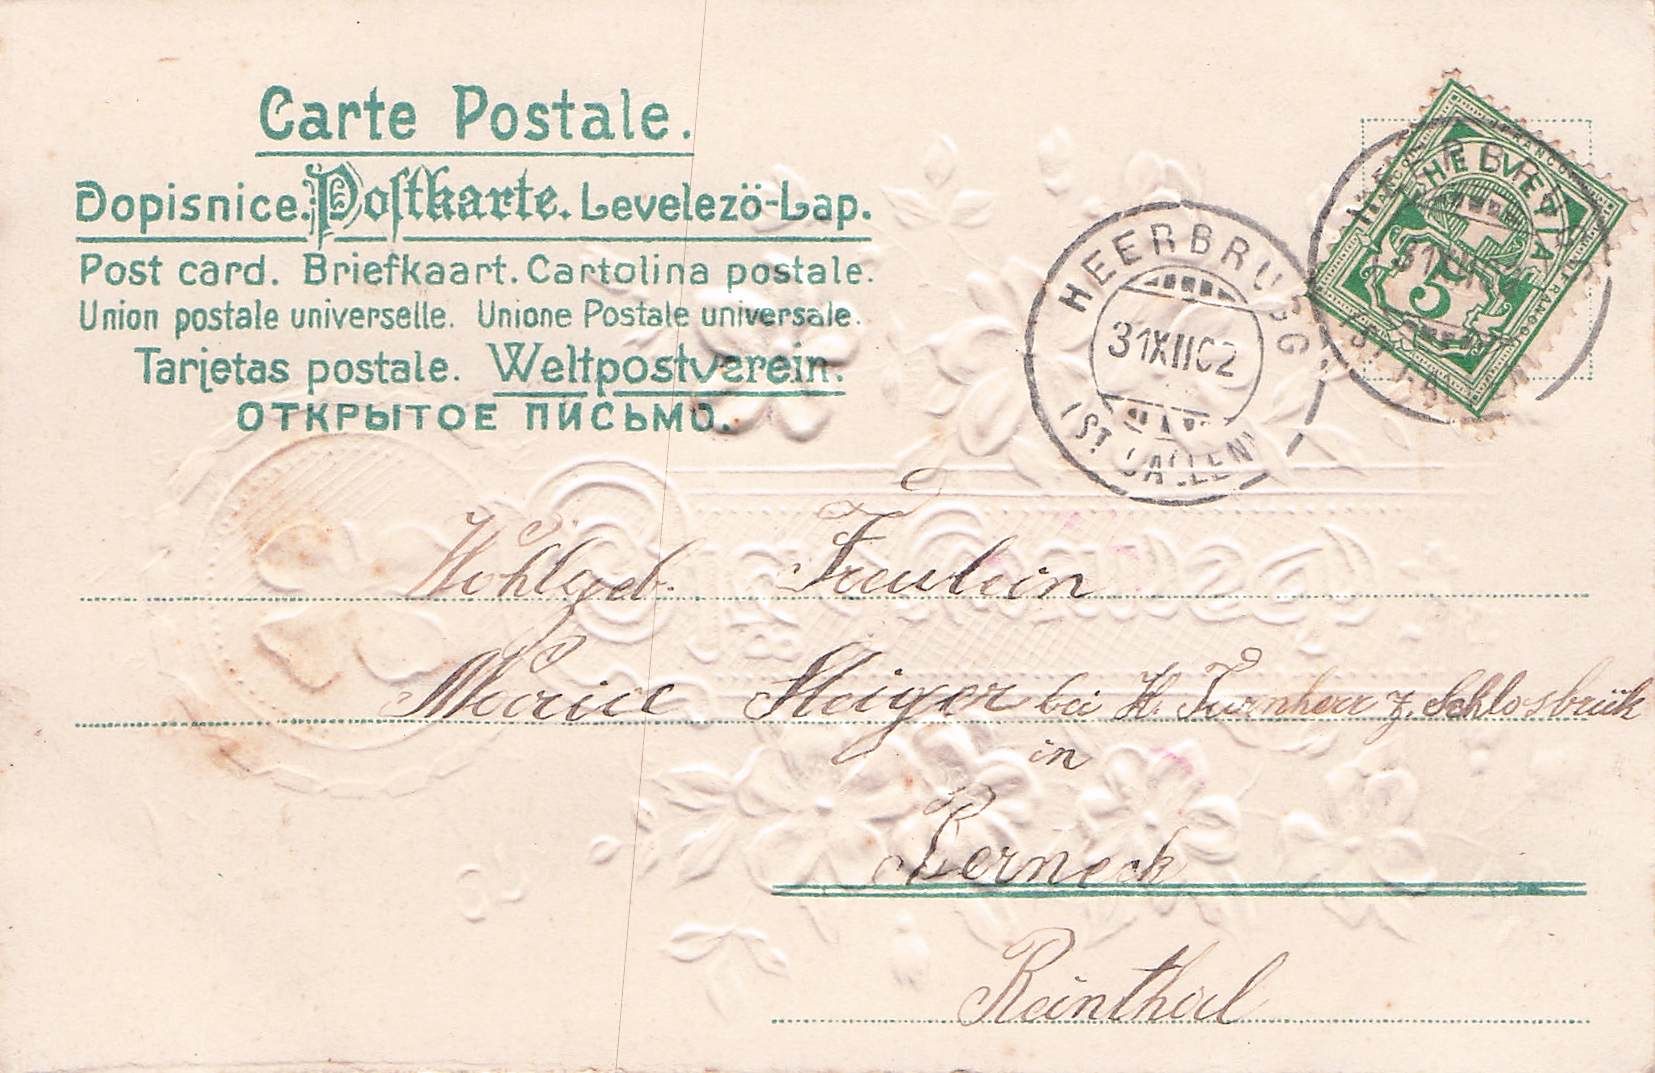 Carte Postale.
Dopisnice. Postkarte. Levelezö-Lap.
Post card. Briefkaart. Cartolina postale.
Union postale universelle. Unione Postale universale.
Tarjetas postale. Weltpostverein.
ОТКРЫТОЕ ПИСЬМО.
HELVETIA
FRANCO
5
HEERBRUGG
31 XII 02
(ST. GALLEN)
Wohlgeb. Freulein
Marie bei H. Turnherr z. Schlosbrük
in
Berneck
Reinthal